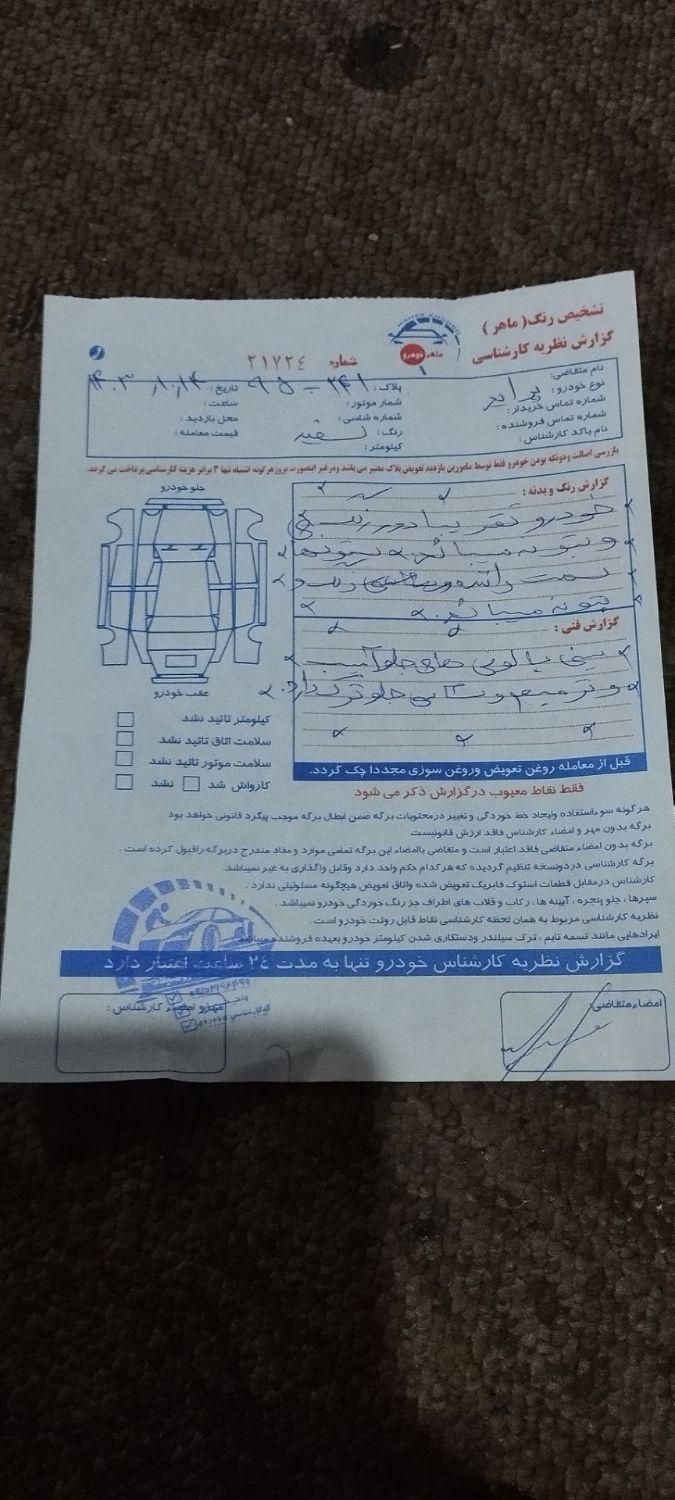 تشخیص رنگ ( ماهر )
گزارش نظریه کارشناسی
ماهر خودرو
شماره ۲۱۷۲٤
نام متقاضی:
نوع خودرو : پراید
شماره تماس خریدار:
شماره تماس فروشنده :
نام یاکد کارشناس :
پلاک :
شمار موتور :
شماره شاسی :
رنگ : سفید
کیلومتر :
تاریخ : ۱۴۰۳,۱۰,۱۴
ساعت :
محل بازدید :
قیمت معامله :
بازرسی اصالت ودوتکه بودن خودرو فقط توسط مامورین بازدید تعویض پلاک معتبر می باشد ودرغیر اینصورت بروز هرگونه اشتباه تنها ۳ برابر هزینه کارشناسی پرداخت می گردد.
گزارش رنگ و بدنه :
خودرو تقریبا دور رنگ
و بتونه میباشد. ستونها
سمت راننده رنگ و
بتونه میباشد.
گزارش فنی :
سینی پالونی های جلو آسیب
و ترمیم و شاسی جلو ترک دارد.
جلو خودرو
عقب خودرو
کیلومتر تائید نشد
سلامت اتاق تائید نشد
سلامت موتور تائید نشد
کارواش شد نشد
قبل از معامله روغن تعویض وروغن سوزی مجددا چک گردد.
فقط نقاط معیوب در گزارش ذکر می شود
هرگونه سوءاستفاده وایجاد خط خوردگی و تغییر در محتویات برگه ضمن ابطال برگه موجب پیگرد قانونی خواهد بود
برگه بدون مهر و امضاء کارشناس فاقد ارزش قانونیست
برگه بدون امضاء متقاضی فاقد اعتبار است و متقاضی باامضاء این برگه تمامی موارد و مفاد مندرج دربرگه راقبول کرده است .
برگه کارشناسی دردونسخه تنظیم گردیده که هرکدام حکم واحد دارد وقابل واگذاری به غیر نمیباشد.
کارشناس درمقابل قطعات استوک فابریک تعویض شده واتاق تعویض هیچگونه مسئولیتی ندارد .
سپرها ، جلو پنجره ، آیینه ها ، رکاب و قلاب های اطراف جز رنگ خوردگی خودرو نمیباشد .
نظریه کارشناسی مربوط به همان لحظه کارشناسی نقاط قابل رولت خودرو است .
ایرادهایی مانند تسمه تایم ، ترک سیلندر ودستکاری شدن کیلومتر خودرو بعهده فروشنده میباشد
گزارش نظریه کارشناس خودرو تنها به مدت ۲٤ ساعت اعتبار دارد
امضاء متقاضی:
مهر و امضاء کارشناس :